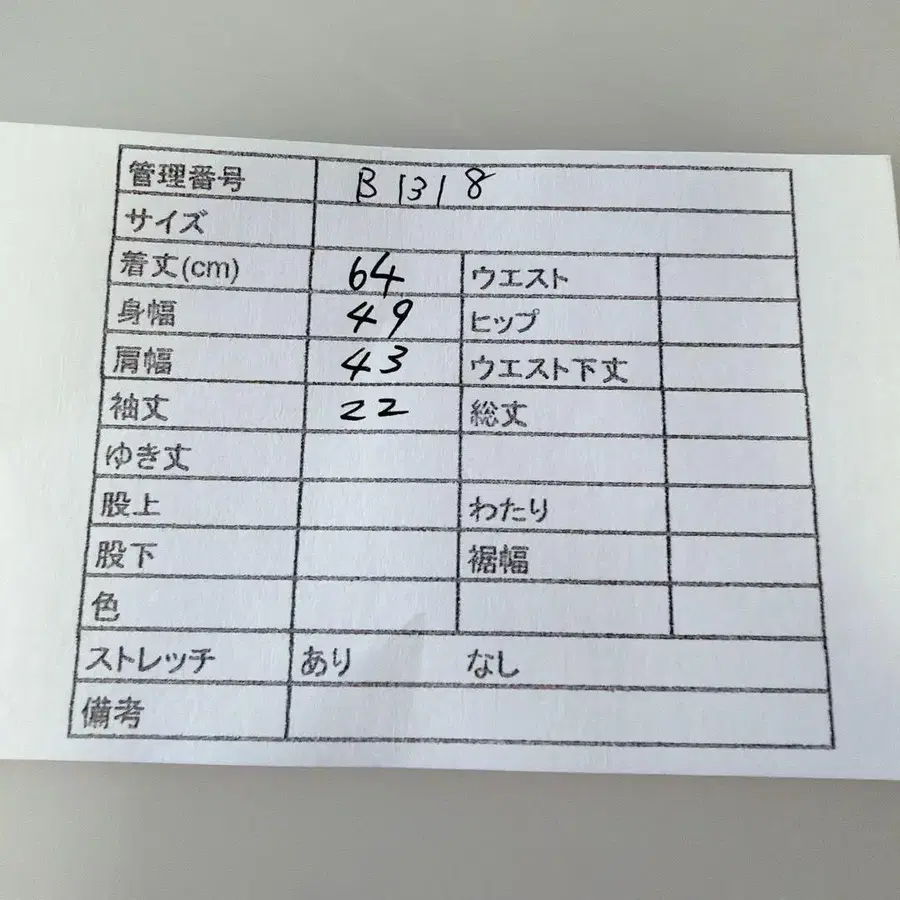 管理番号 B1318
サイズ
着丈(cm) 64 ウエスト
身幅 49 ヒップ
肩幅 43 ウエスト下丈
袖丈 22 総丈
ゆき丈
股上 わたり
股下 裾幅
色
ストレッチ あり なし
備考